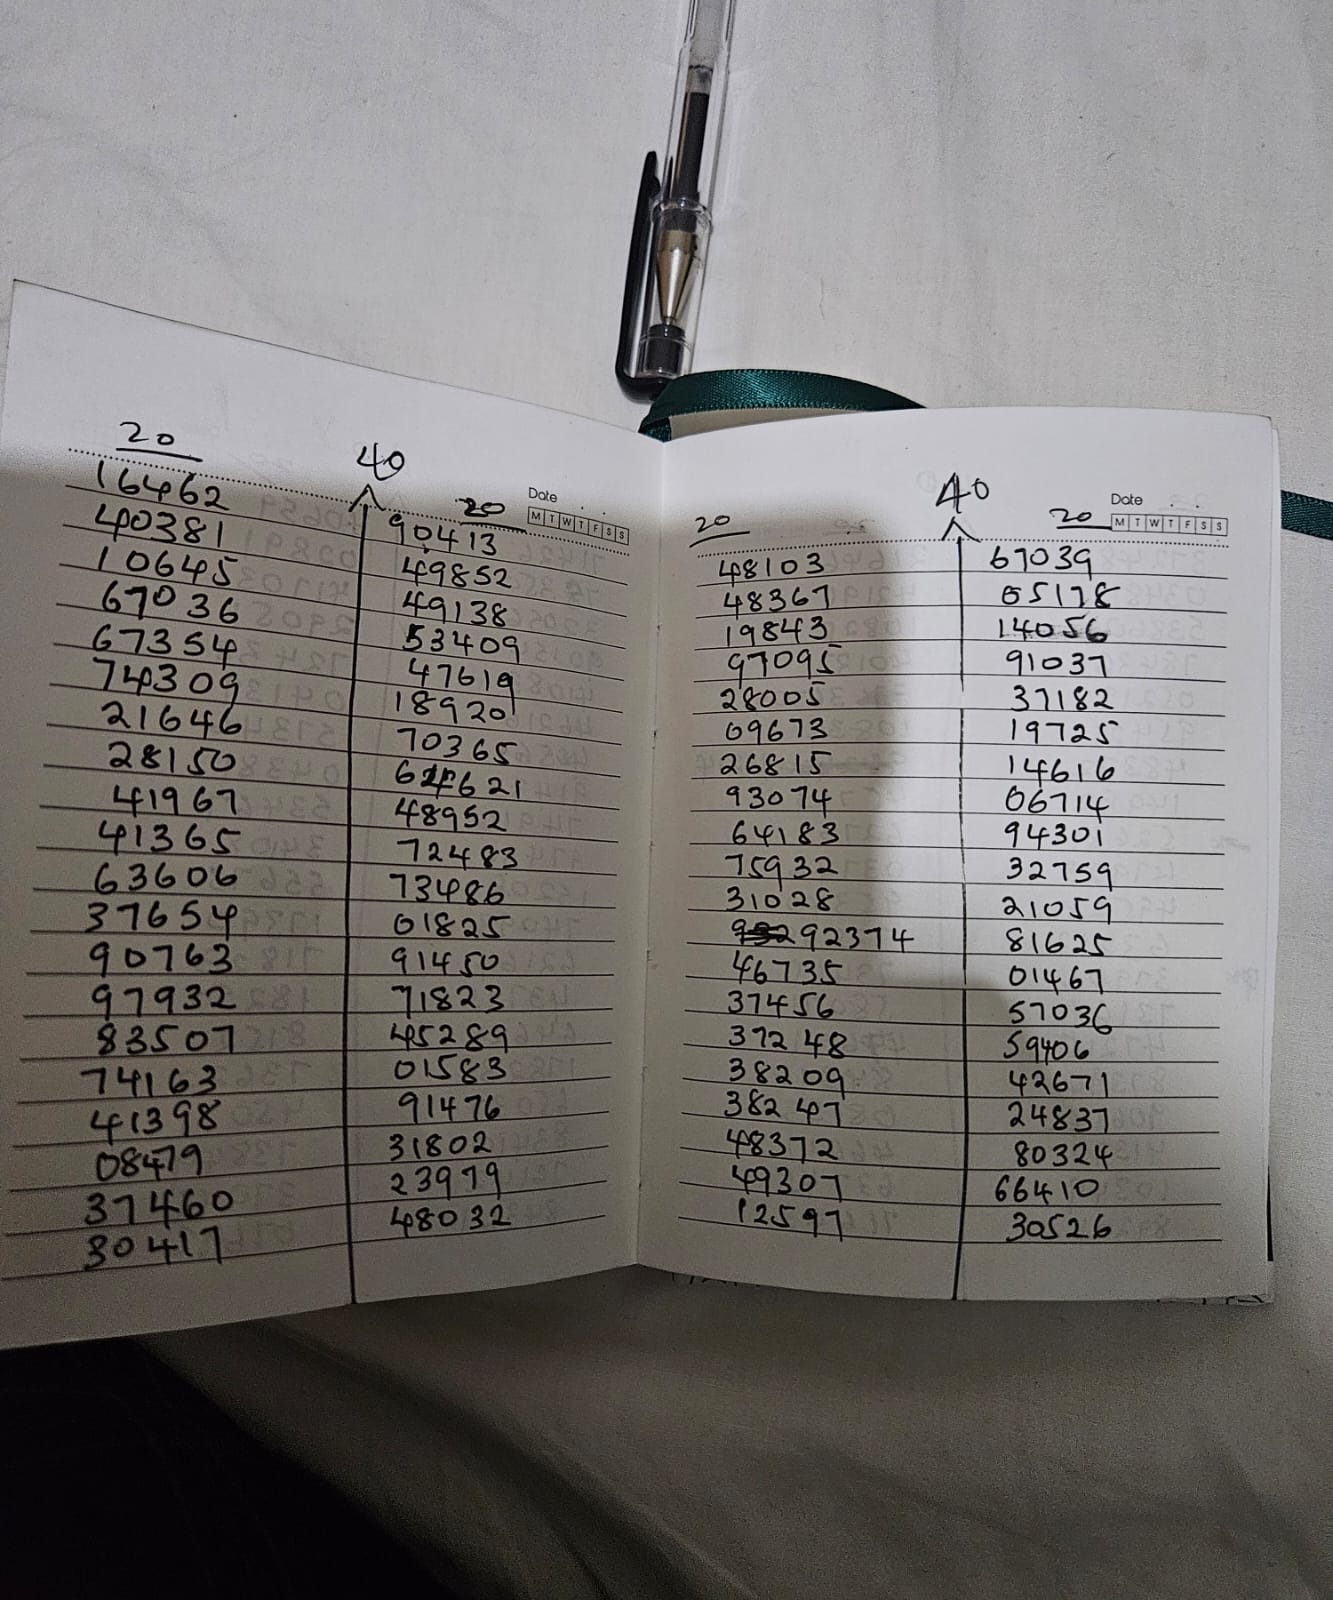 20
40
16462
40381
10645
67036
67354
74309
21646
28150
41967
41365
63606
37654
90763
97932
83507
74163
41398
08479
37460
30417
20
Date
M T W T F S S
90413
49852
49138
53409
47619
18920
70365
48952
72483
73486
01825
91450
71823
45289
01583
91476
31802
23979
48032
20
40
48103
48367
19843
97095
28005
09673
26815
93074
64183
75932
31028
92374
46735
37456
37248
38209
38247
48372
49307
12597
20
Date
M T W T F S S
67039
05178
14056
91037
37182
19725
14616
06714
94301
32759
21059
81625
01467
57036
59406
42671
24837
80324
66410
30526